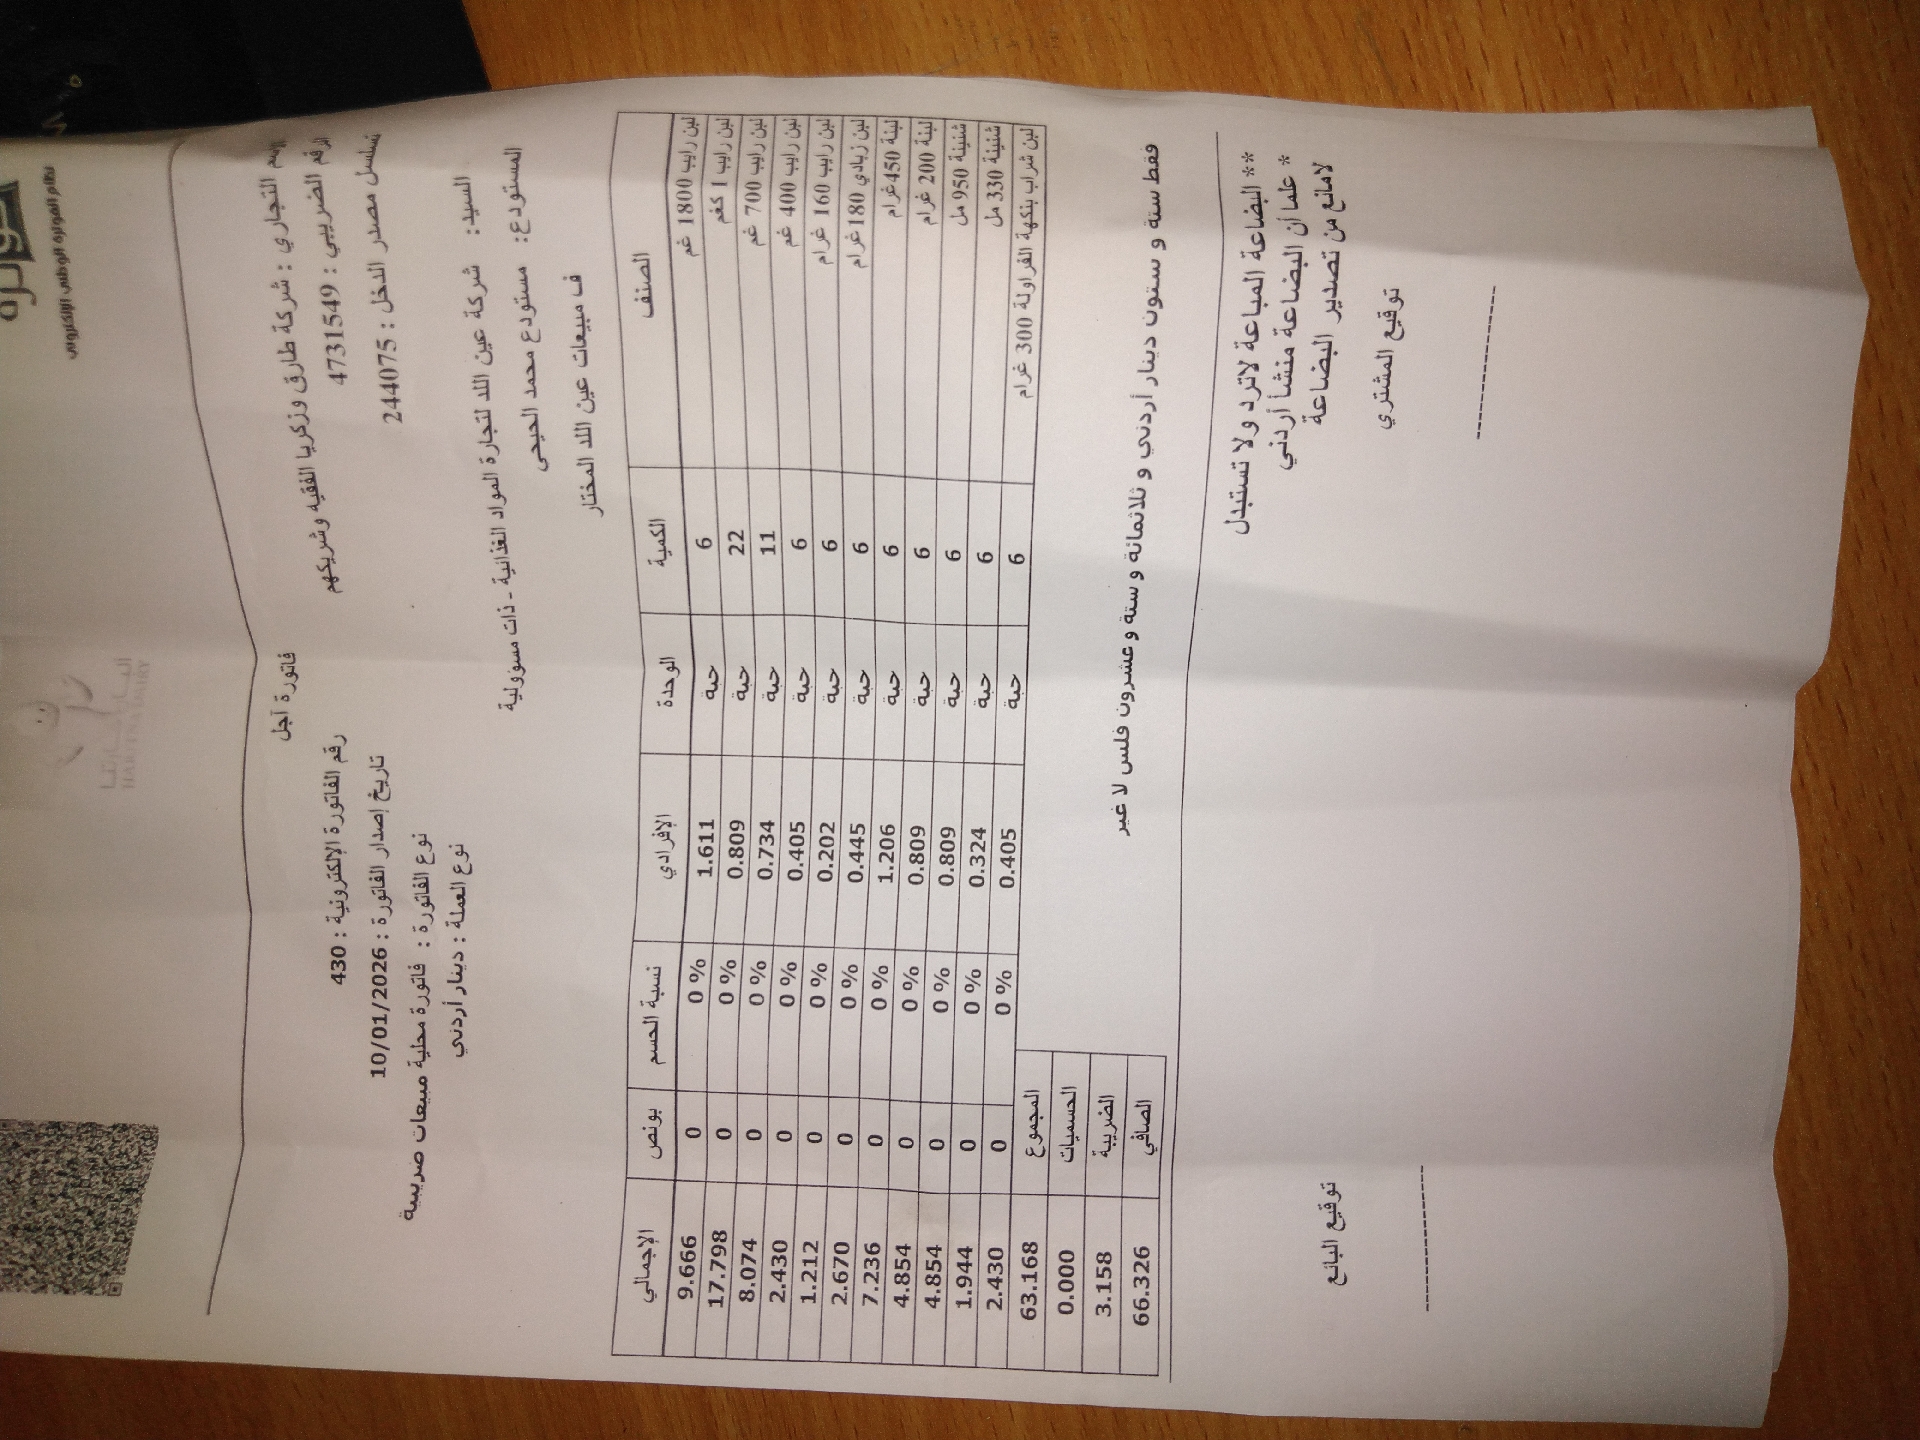 فوترة
نظام الفوترة الوطني الإلكتروني
HAMITNA DAIRY
فاتورة آجل
الاسم التجاري : شركة طارق وزكريا الفقيه وشريكهم
الرقم الضريبي : 4731549
تسلسل مصدر الدخل : 244075
رقم الفاتورة الإلكترونية : 430
تاريخ إصدار الفاتورة : 10/01/2026
نوع الفاتورة : فاتورة محلية مبيعات ضريبية
نوع العملة : دينار أردني
السيد: شركة عين اللد لتجارة المواد الغذائية - ذات مسؤولية
المستودع: مستودع محمد الحيحي
ف مبيعات عين اللد المختار
الصنف الكمية الوحدة الإفرادي نسبة الحسم بونص الإجمالي
لبن رايب 1800 غم 6 حبة 1.611 0 % 0 9.666
لبن رايب 1 كغم 22 حبة 0.809 0 % 0 17.798
لبن رايب 700 غم 11 حبة 0.734 0 % 0 8.074
لبن رايب 400 غم 6 حبة 0.405 0 % 0 2.430
لبن رايب 160 غرام 6 حبة 0.202 0 % 0 1.212
لبن زبادي 180 غرام 6 حبة 0.445 0 % 0 2.670
لبنة 450 غرام 6 حبة 1.206 0 % 0 7.236
لبنة 200 غرام 6 حبة 0.809 0 % 0 4.854
شنينة 950 مل 6 حبة 0.809 0 % 0 4.854
شنينة 330 مل 6 حبة 0.324 0 % 0 1.944
لبن شراب بنكهة الفراولة 300 غرام 6 حبة 0.405 0 % 0 2.430
المجموع 63.168
الحسميات 0.000
الضريبة 3.158
الصافي 66.326
فقط ستة و ستون دينار أردني و ثلاثمائة و ستة و عشرون فلس لا غير
** البضاعة المباعة لاترد ولا تستبدل
* علما أن البضاعة منشأ أردني
لامانع من تصدير البضاعة
توقيع المشتري
توقيع البائع